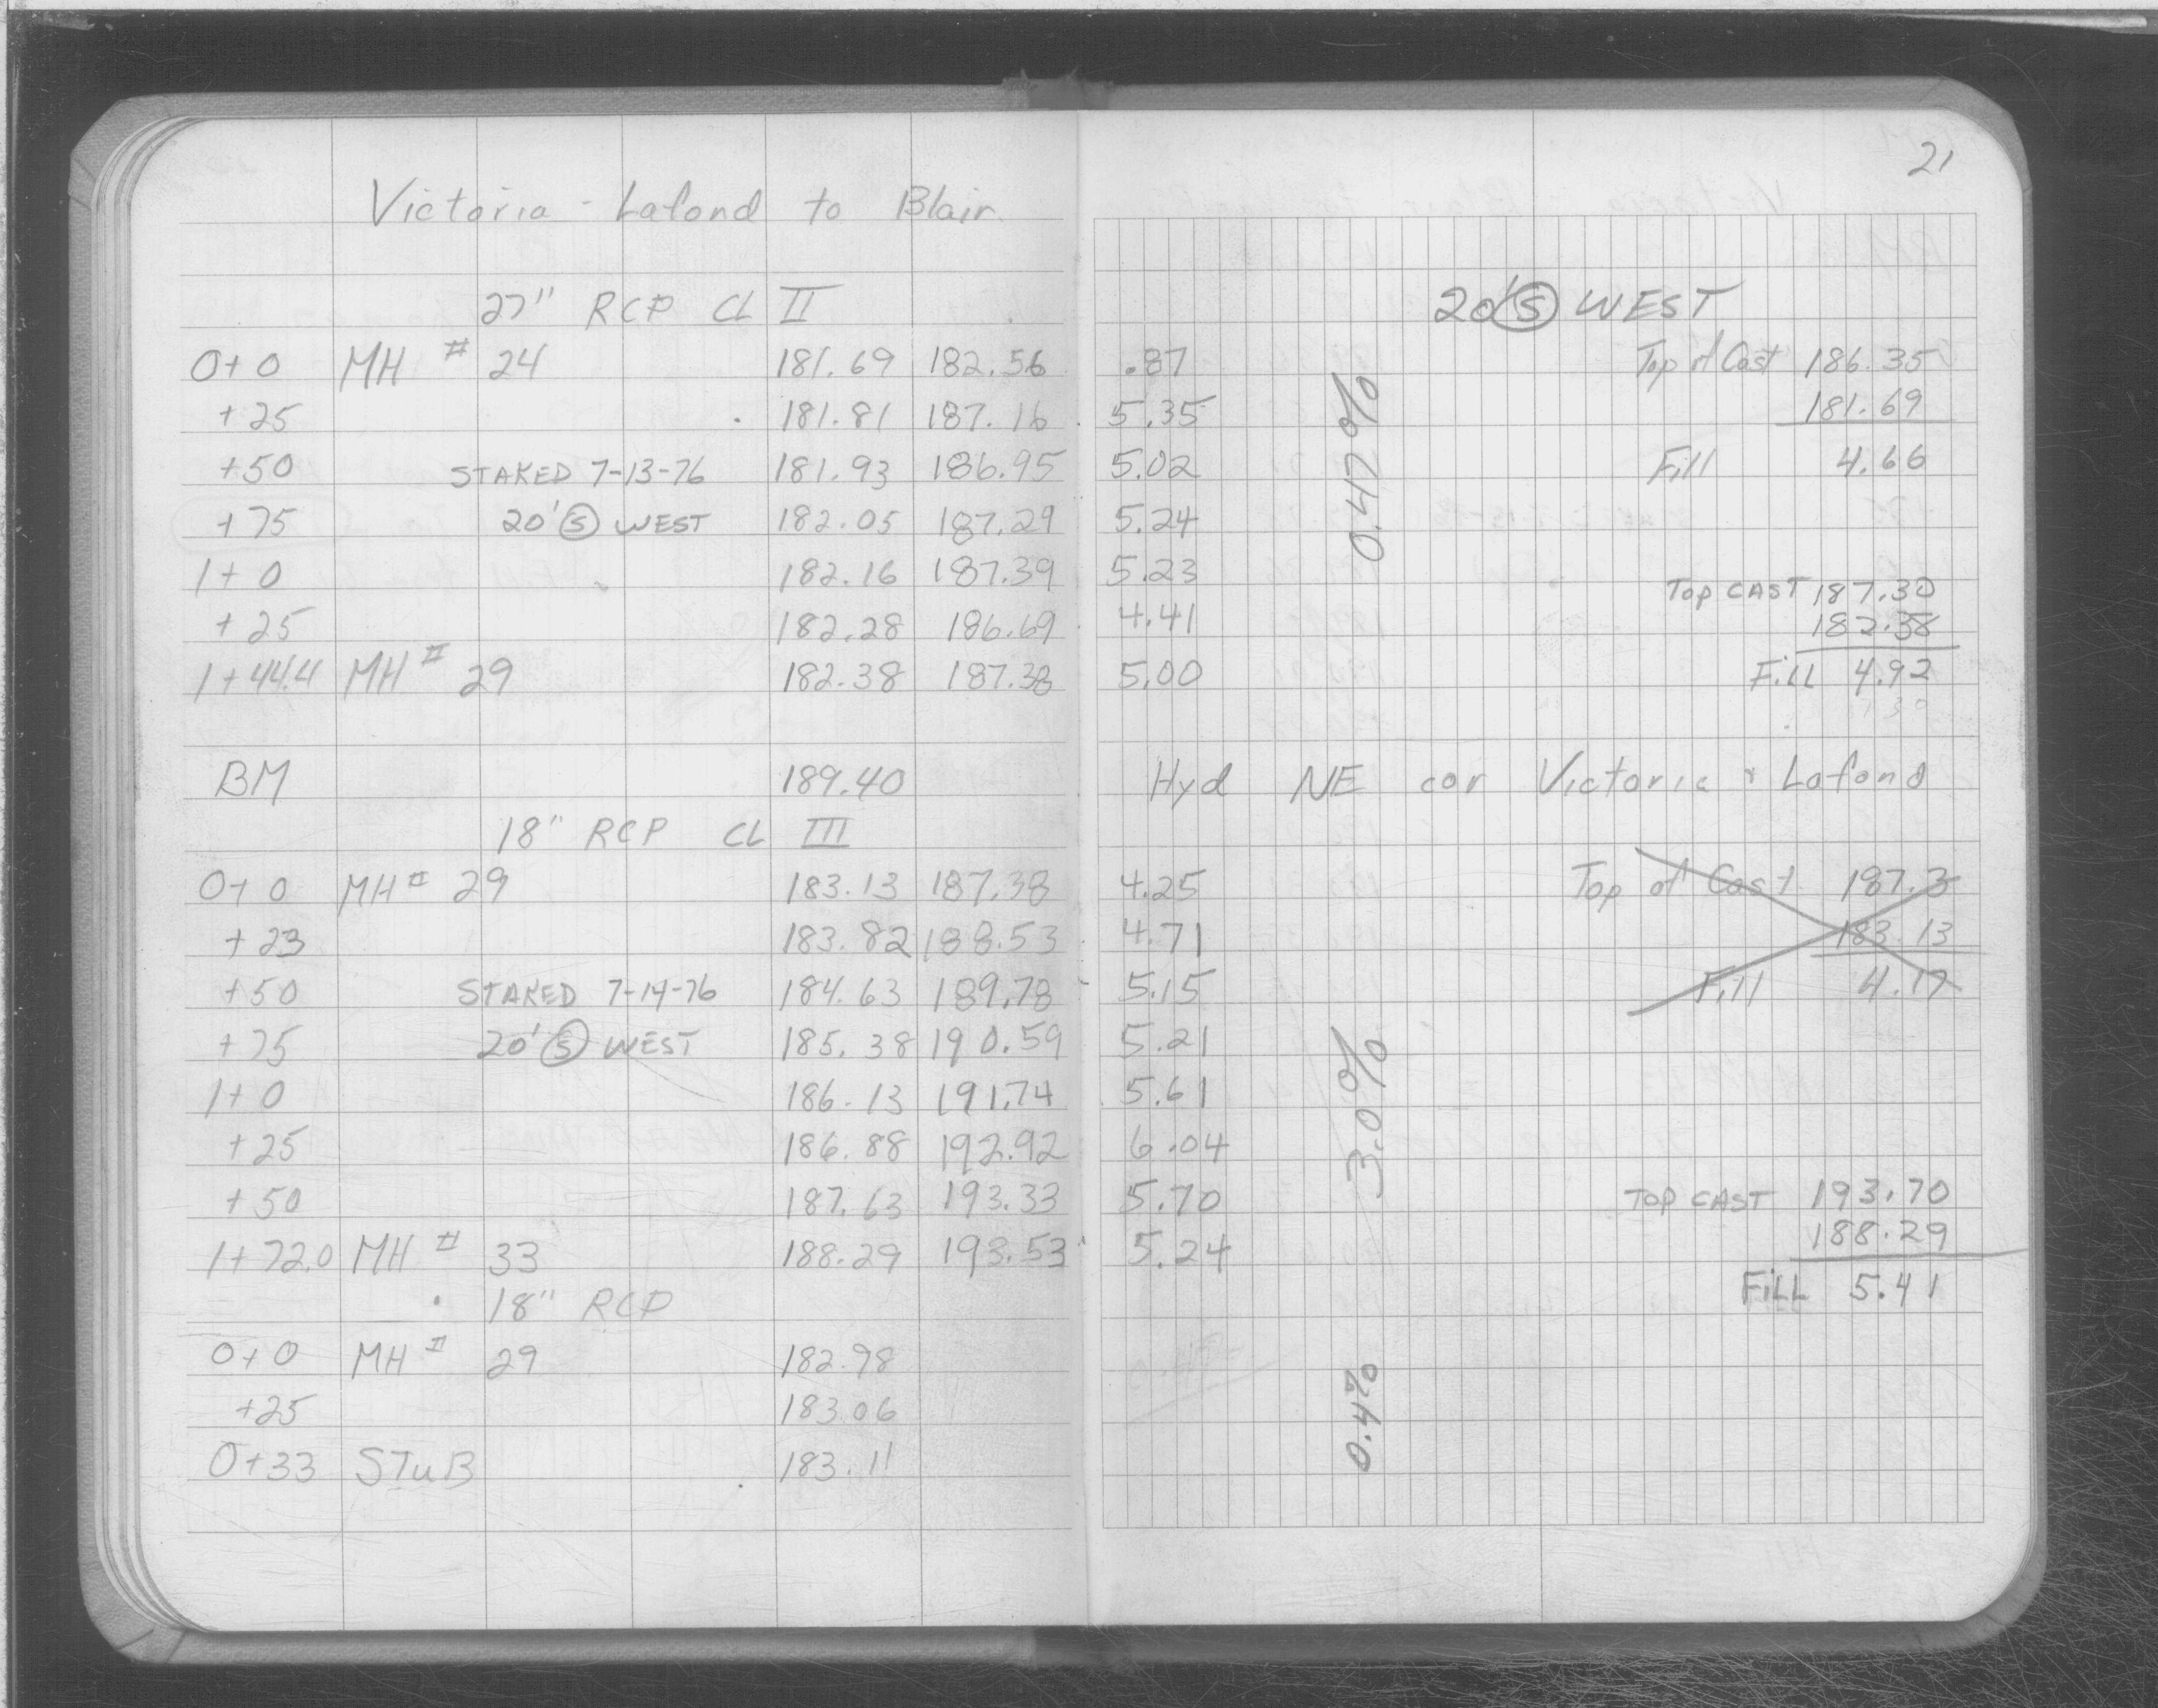 21
Victoria - Lafond to Blair
27" RCP CL II
20' Ⓢ WEST
0+0 MH # 24 181.69 182.56 .87 Top of Cast 186.35
+25 181.81 187.16 5.35 181.69
+50 STAKED 7-13-76 181.93 186.95 5.02 Fill 4.66
+75 20' Ⓢ WEST 182.05 187.29 5.24
0.47%
1+0 182.16 187.39 5.23 TOP CAST 187.30
+25 182.28 186.69 4.41 182.38
1+44.4 MH # 29 182.38 187.38 5.00 Fill 4.92
BM 189.40 Hyd NE cor Victoria & Lafond
18" RCP CL III
0+0 MH # 29 183.13 187.38 4.25 Top of Cast 187.3
+23 183.82 188.53 4.71 183.13
+50 STAKED 7-14-76 184.63 189.78 5.15 Fill 4.17
+75 20' Ⓢ WEST 185.38 190.59 5.21
1+0 186.13 191.74 5.61
3.0%
+25 186.88 192.92 6.04
+50 187.63 193.33 5.70 TOP CAST 193.70
1+72.0 MH # 33 188.29 193.53 5.24 188.29
18" RCP FILL 5.41
0+0 MH # 29 182.98
+25 183.06
0.4%
0+33 STUB 183.11